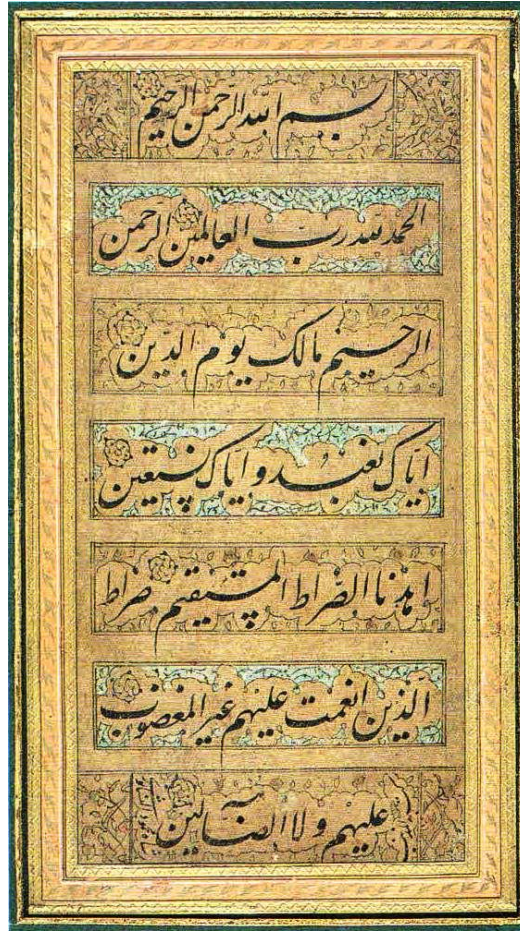 بسم الله الرحمن الرحیم
الحمد لله رب العالمین الرحمن
الرحیم مالک یوم الدین
ایاک نعبد و ایاک نستعین
اهدنا الصراط المستقیم صراط
الذین انعمت علیهم غیر المغضوب
علیهم ولا الضالین